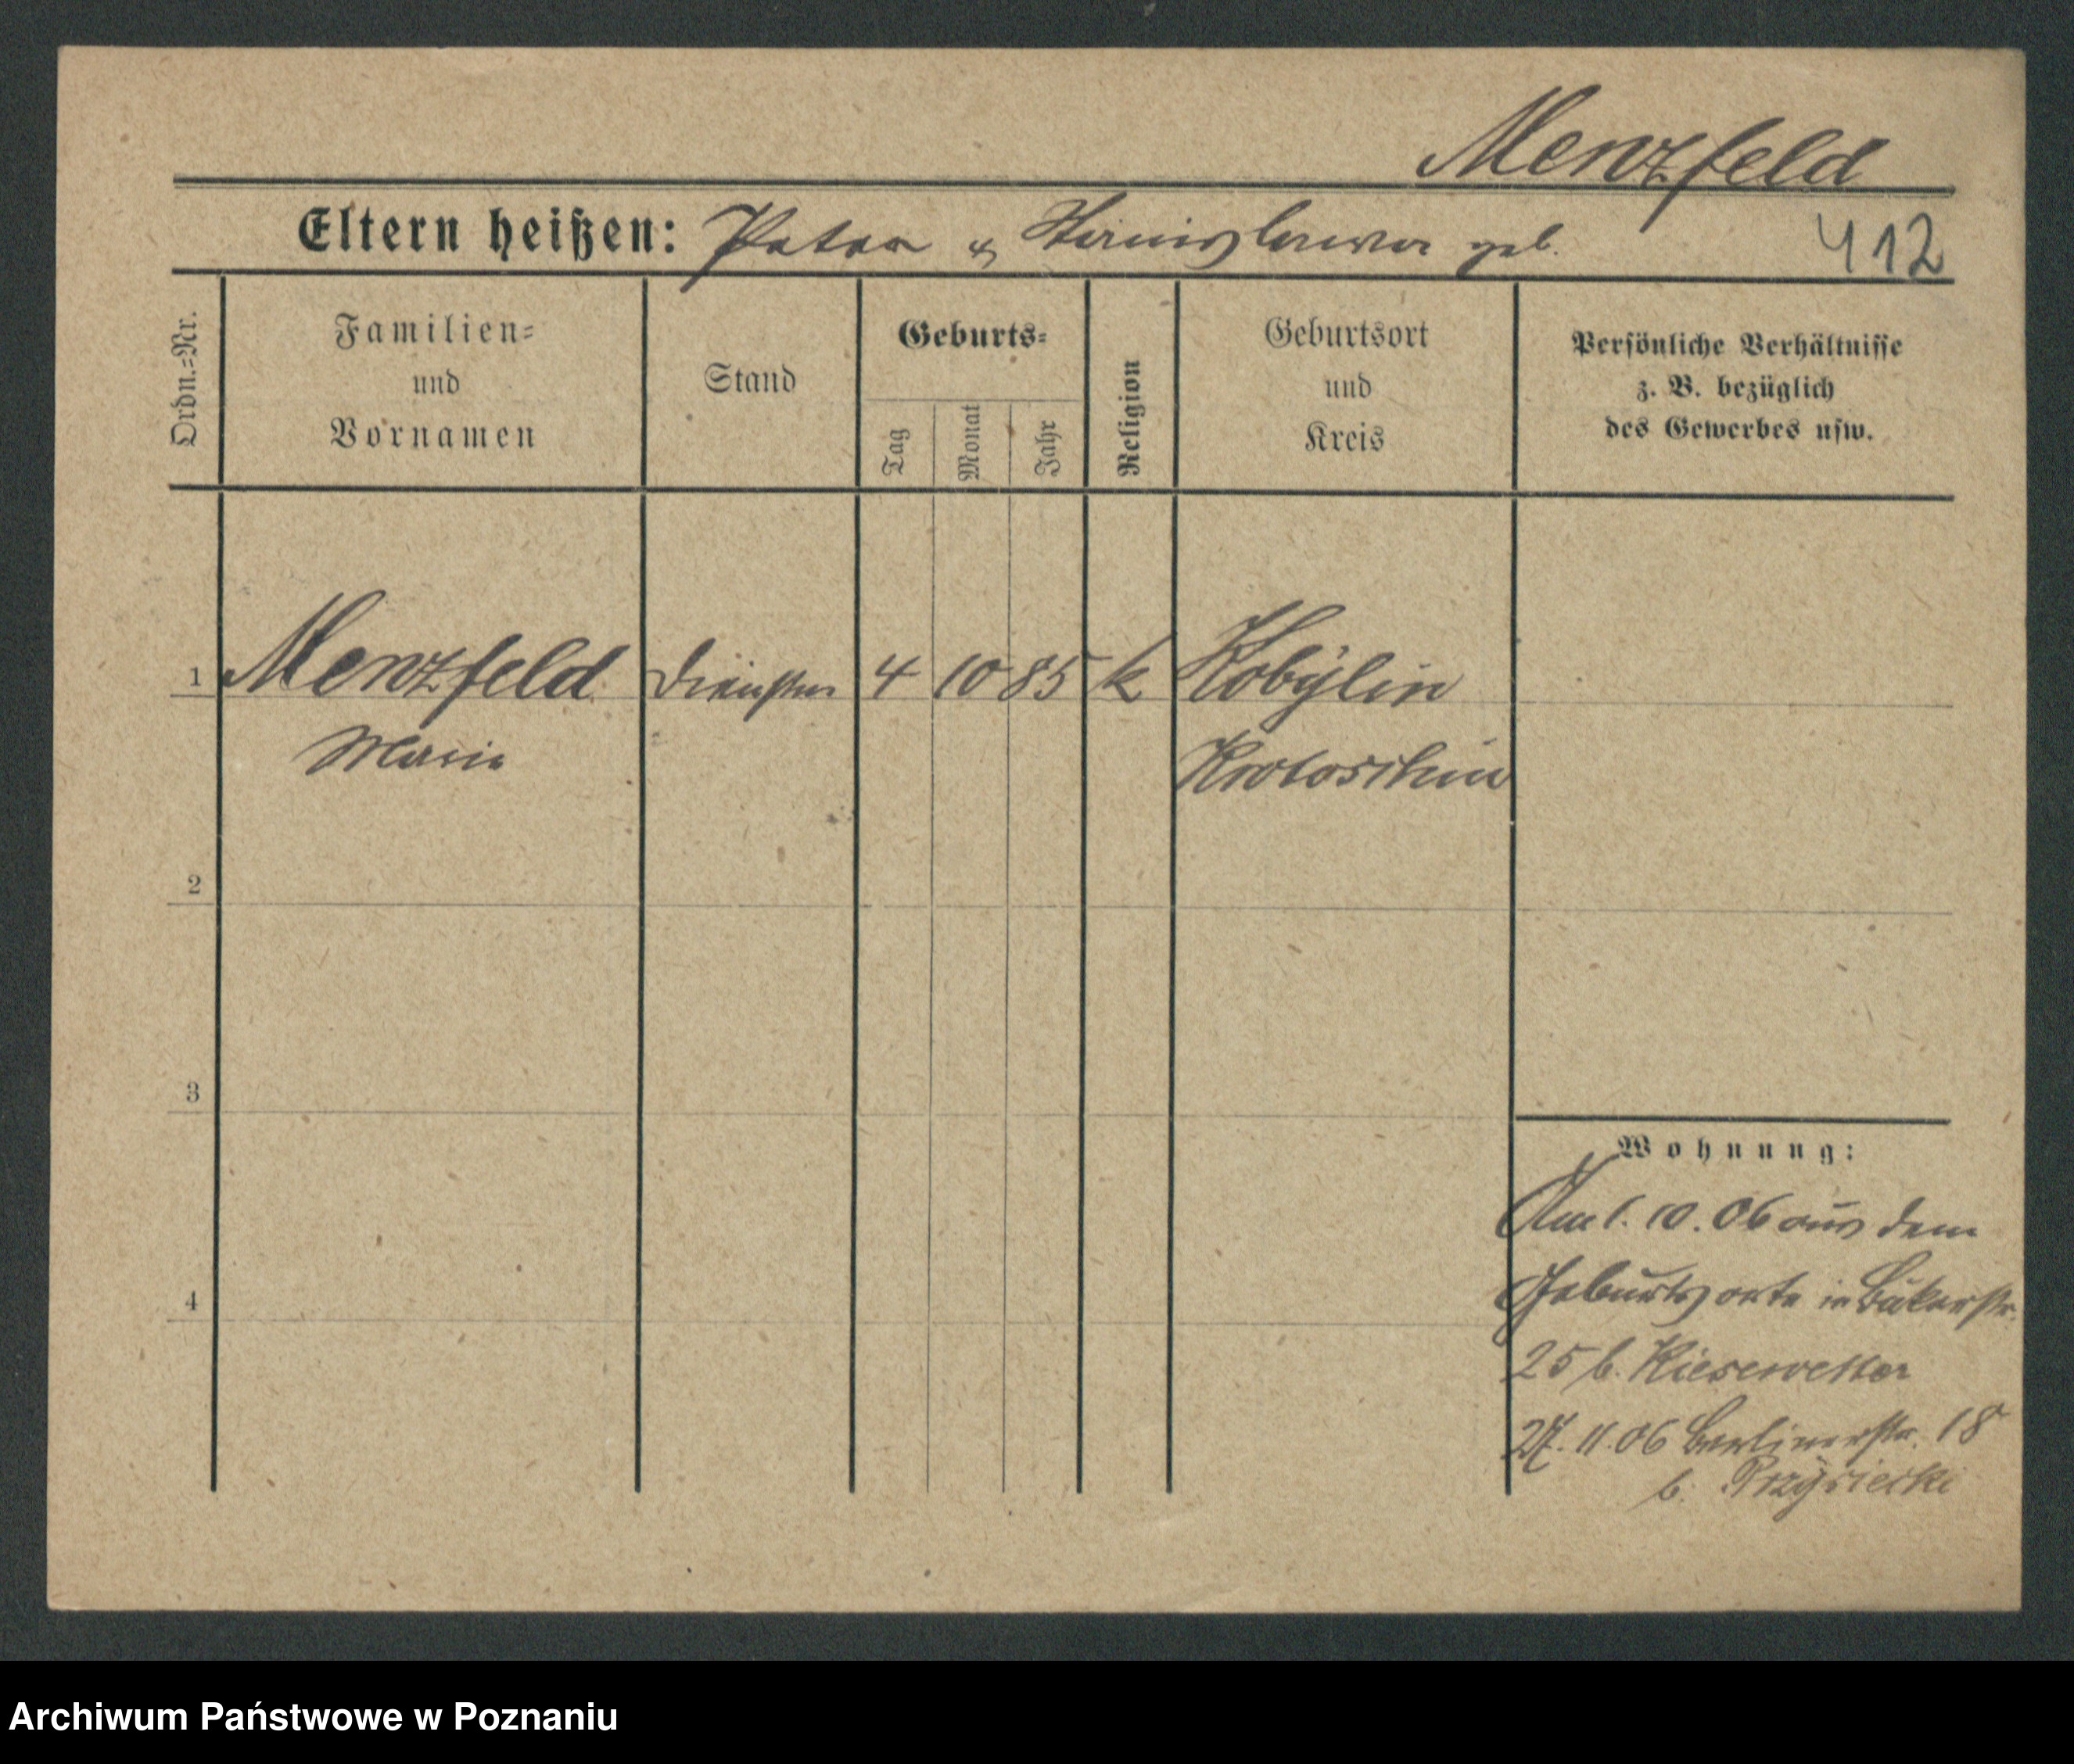 Menzfeld
Eltern heißen: Peter u Stanislawa geb.
412
Ordn.=Nr.
Familien=
und
Vornamen
Stand
Geburts=
Tag
Monat
Jahr
Religion
Geburtsort
und
Kreis
Persönliche Verhältnisse
z. B. bezüglich
des Gewerbes usw.
1 Menzfeld 4 10 85 k Kobylin
Marie Krotoschin
2
3
4
Wohnung:
Am 1. 10. 06 aus dem
Geburtsorte in Bäkerstr.
25 b. Kiesewetter
27. 11. 06 Berlinerstr. 18
b. Przysiecki
Archiwum Państwowe w Poznaniu